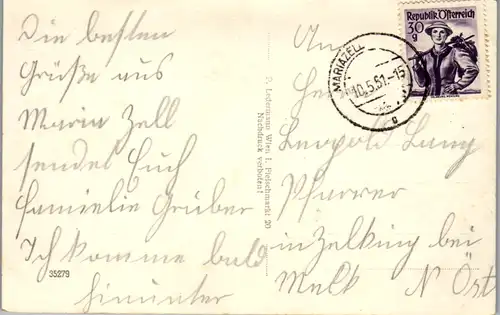 Die besten
Grüße aus
Maria Zell
sendet Euch
Familie Gruber
Ich komme bald
hinunter
35279
P. Ledermann Wien I, Fleischmarkt 20
Nachdruck verboten!
Republik Österreich
30
g
MARIAZELL
10.5.51.-15
g
An
Leopold Lang
Pfarrer
in Zelking bei
Melk N Öst